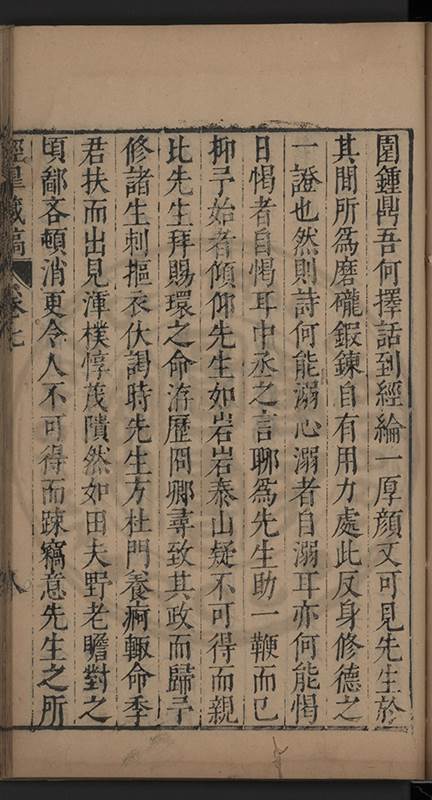 園鍾鼎吾何擇話到經綸一厚顏又可見先生於
其間所為磨礲鍜鍊自有用力處此反身修德之
一證也然則詩何能溺心溺者自溺耳亦何能愒
日愒者自愒耳中丞之言聊為先生助一鞭而已
抑予始者傾仰先生如岩岩泰山疑不可得而親
比先生拜賜環之命洊歷冏卿尋致其政而歸予
修諸生刺摳衣伏謁時先生方杜門養痾輙命季
君扶而出見渾樸惇茂隤然如田夫野老瞻對之
頃鄙吝頓消更令人不可得而踈竊意先生之所
藏稿 卷七